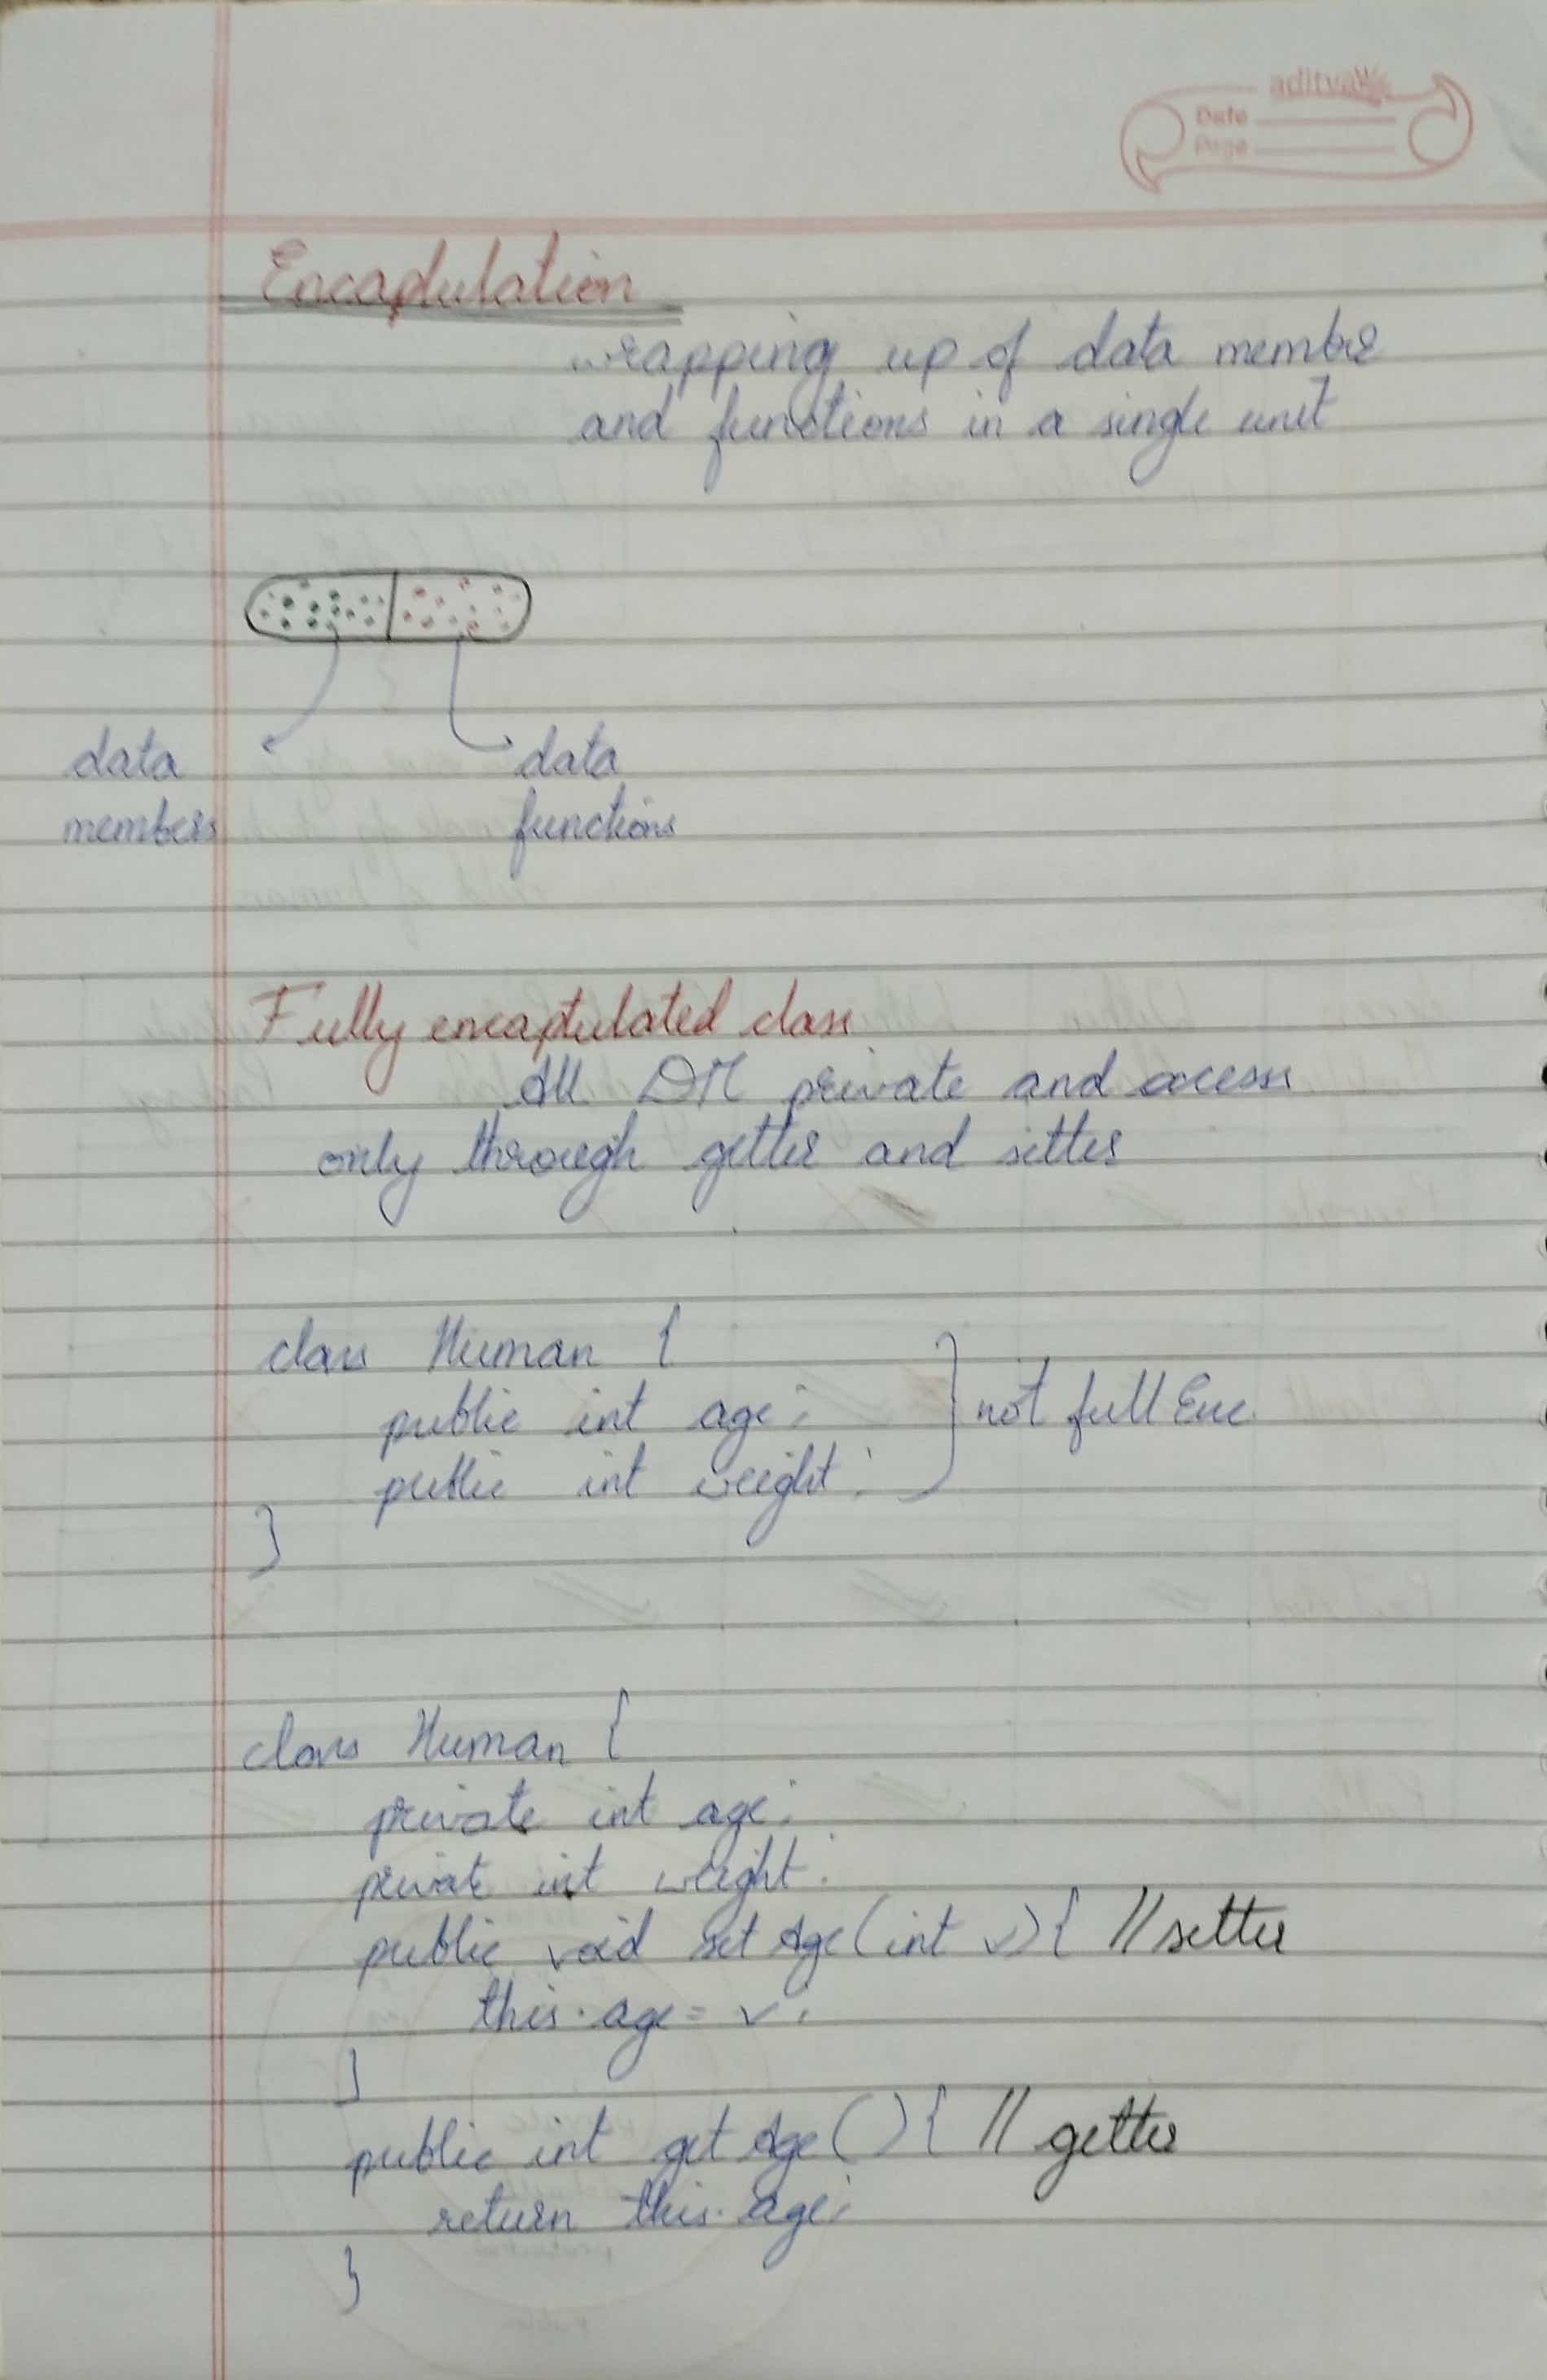 aditya
Date
Page
Encapdulation
wrapping up of data member
and functions in a single unit
data
members
data
functions
Fully encaptulated class
All DM private and access
only through getter and setter
class Human {
public int age;
public int weight;
}
} not full Enc.
class Human {
private int age;
private int weight;
public void set Age (int v) { // setter
this.age = v;
}
public int get Age () { // getter
return this.age;
}